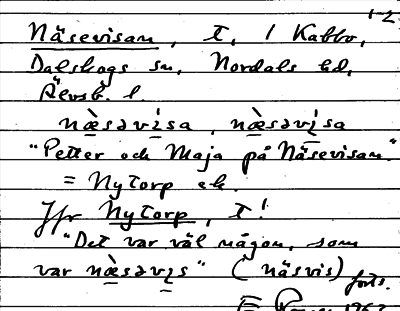 1-2
Näsevisan, t, i Kabbo,
Dalskogs sn, Nordals hd,
Älvsb. l.
næ̀səvi̇sa, næ̀səvi̇sa
"Petter och Maja på Näsevisan."
= Nytorp ek.
Jfr Nytorp, t!
"Det var väl någon, som
var næ̀səvi̇s" (näsvis)
forts.